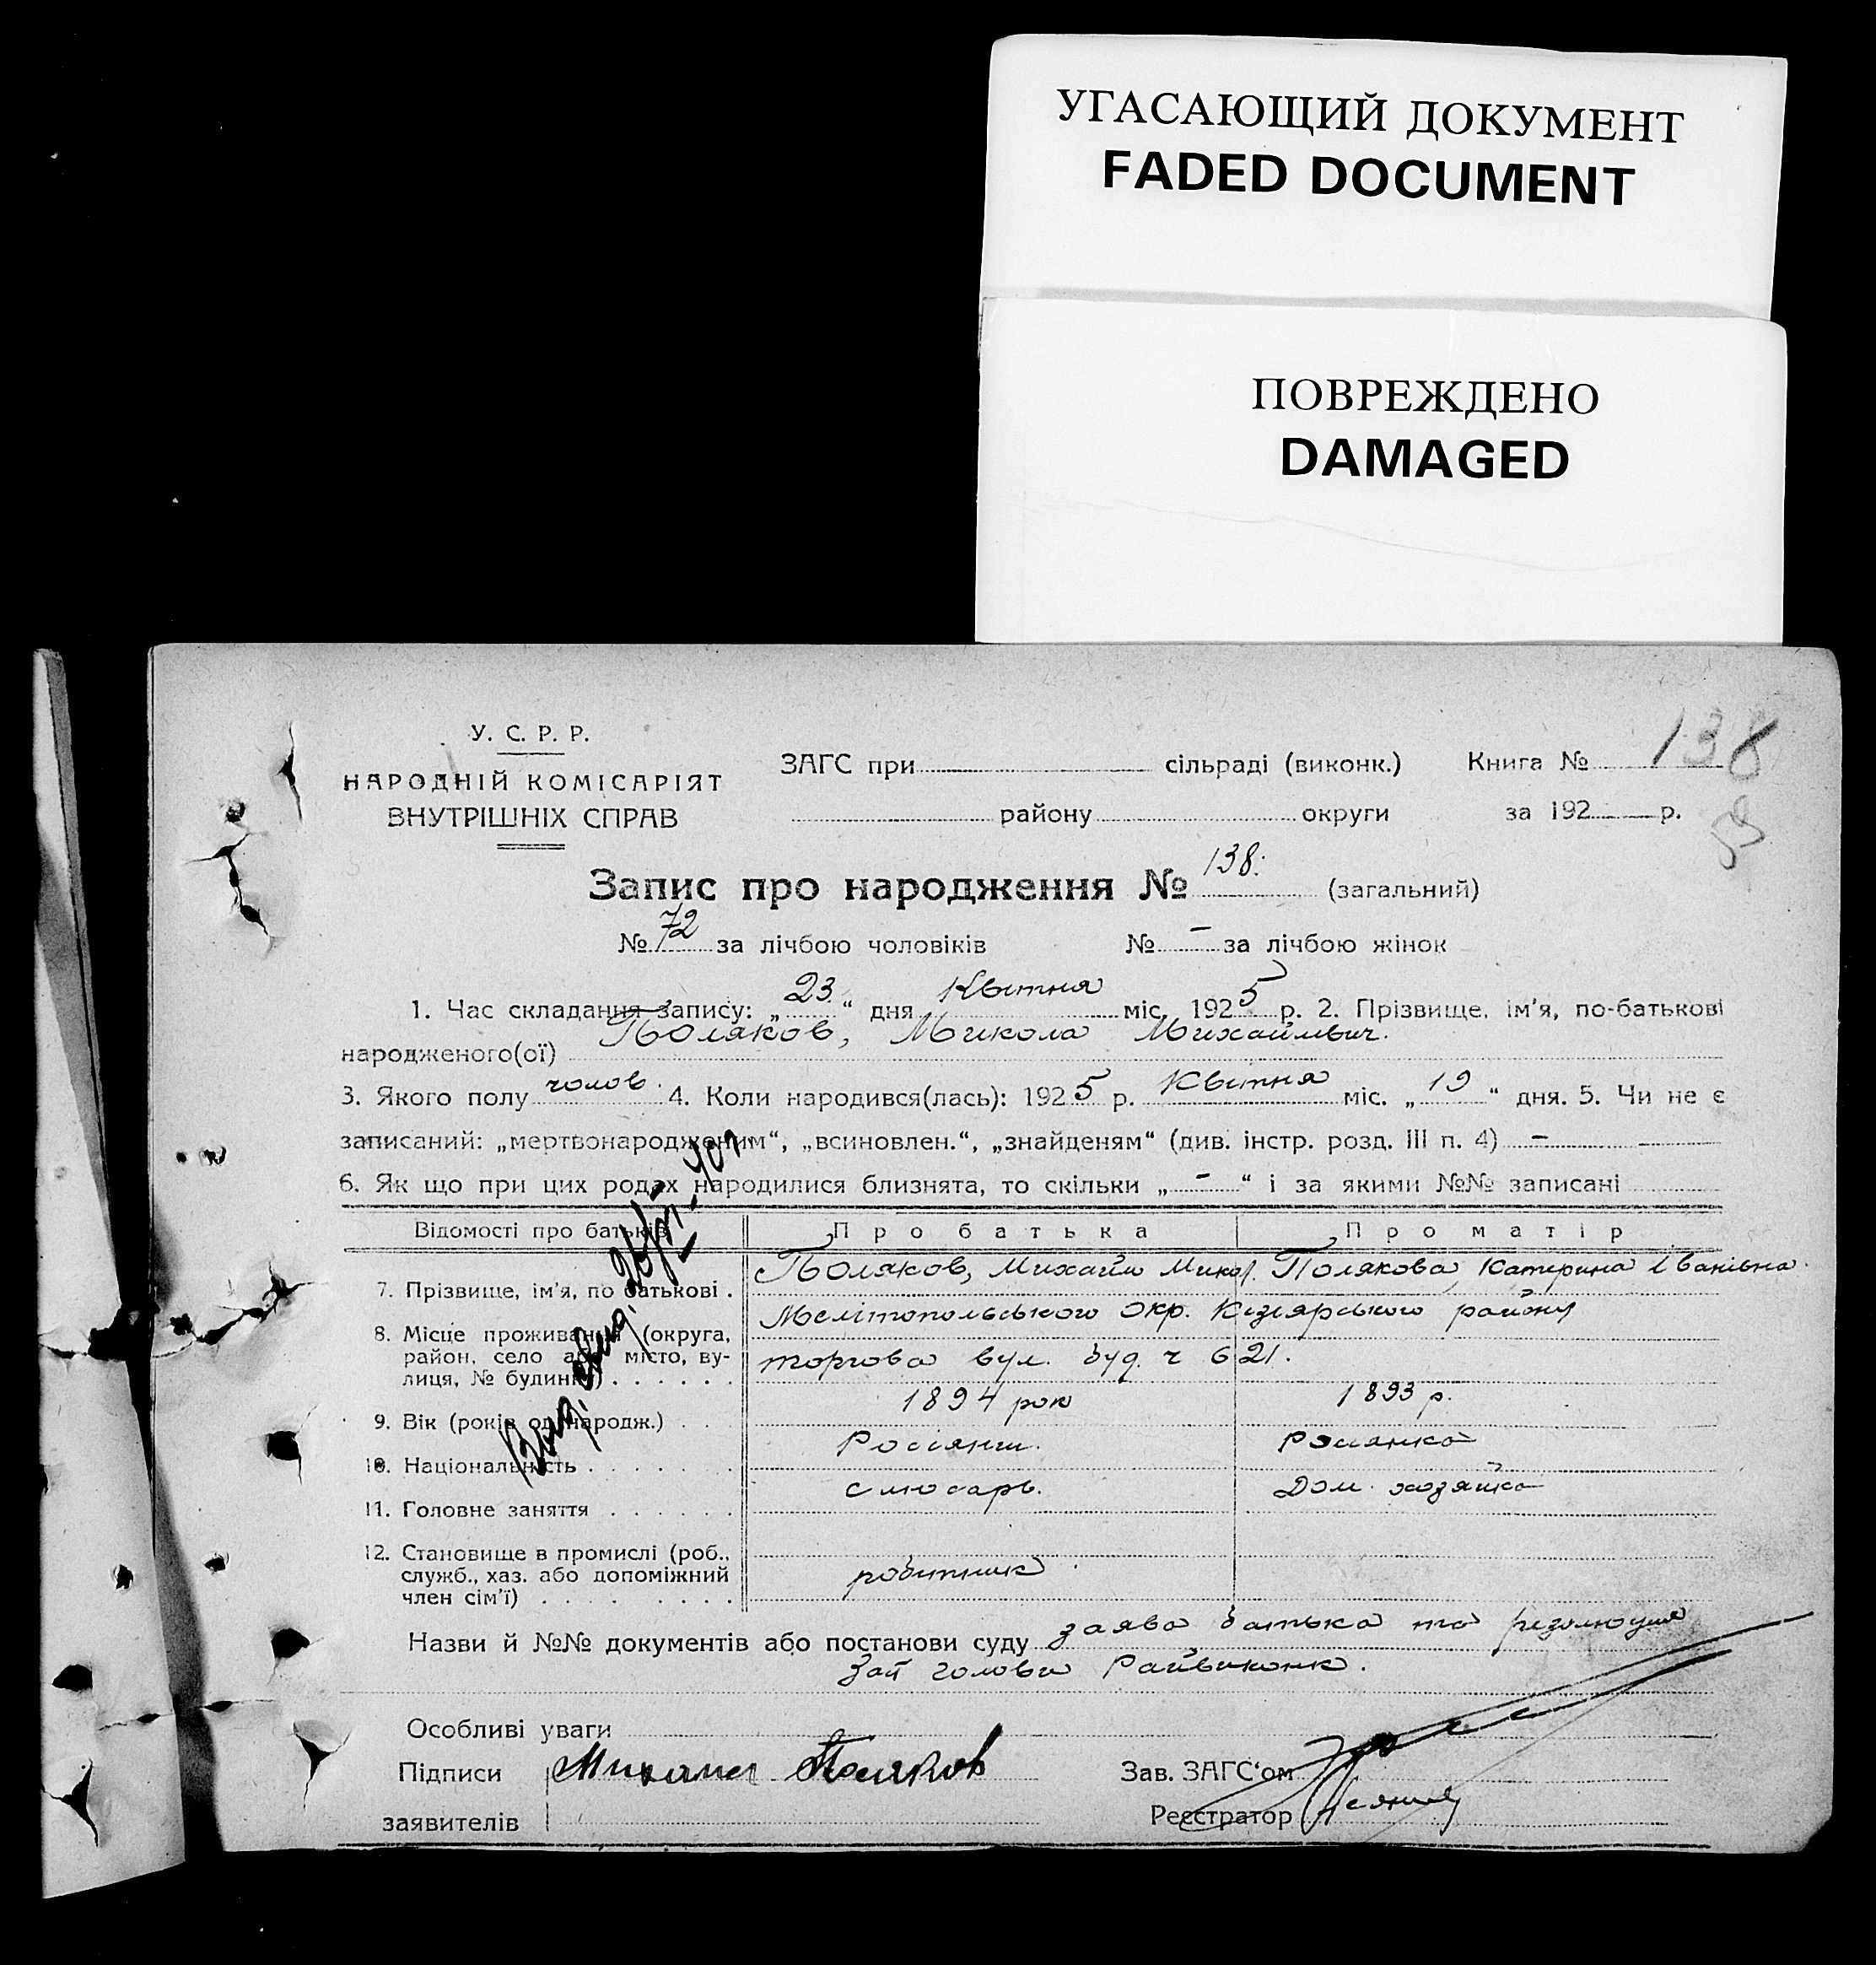 УГАСАЮЩИЙ ДОКУМЕНТ
FADED DOCUMENT
ПОВРЕЖДЕНО
DAMAGED
У. С. Р. Р.
НАРОДНІЙ КОМІСАРІЯТ
ВНУТРІШНІХ СПРАВ
ЗАГС при сільраді (виконк.) Книга № 138
району округи за 192 р.
Запис про народження № 138. (загальний)
№ 72 за лічбою чоловіків № - за лічбою жінок
1. Час складання запису: „23“ дня Квітня міс. 1925 р. 2. Прізвище, ім'я, по-батькові
народженого(ої) Поляков, Микола Михайлвич.
3. Якого полу чолов. 4. Коли народився(лась): 1925 р. Квітня міс. „19“ дня. 5. Чи не є
записаний: „мертвонародженим“, „всиновлен.“, „знайденям“ (див. інстр. розд. III п. 4) -
6. Як що при цих родах народилися близнята, то скільки „-“ і за якими №№ записані
Відомості про батьків Про батька Про матір
7. Прізвище, ім'я, по батькові . Поляков, Михайло Микол. Полякова, Катерина Іванівна.
8. Місце проживання (округа, район, село або місто, ву-лиця, № будинку) . . . . . . Мелітопольського Окр. Кізіярського району
торгова вул. буд. ч 621.
9. Вік (років од народж.) . . 1894 рок 1893 р.
10. Національність . . . . . . . Росіянин. Росіянка
11. Головне заняття . . . . . . слюсарь. Дом. хозяйка
12. Становище в промислі (роб., служб., хаз. або допоміжний член сім'ї) . . . . . . . . . робитник
Назви й №№ документів або постанови суду заява батька та резолюция
Зат голови Райвиконк.
Особливі уваги
Підписи Михаил Поляков Зав. ЗАГС'ом
заявителів Реєстратор